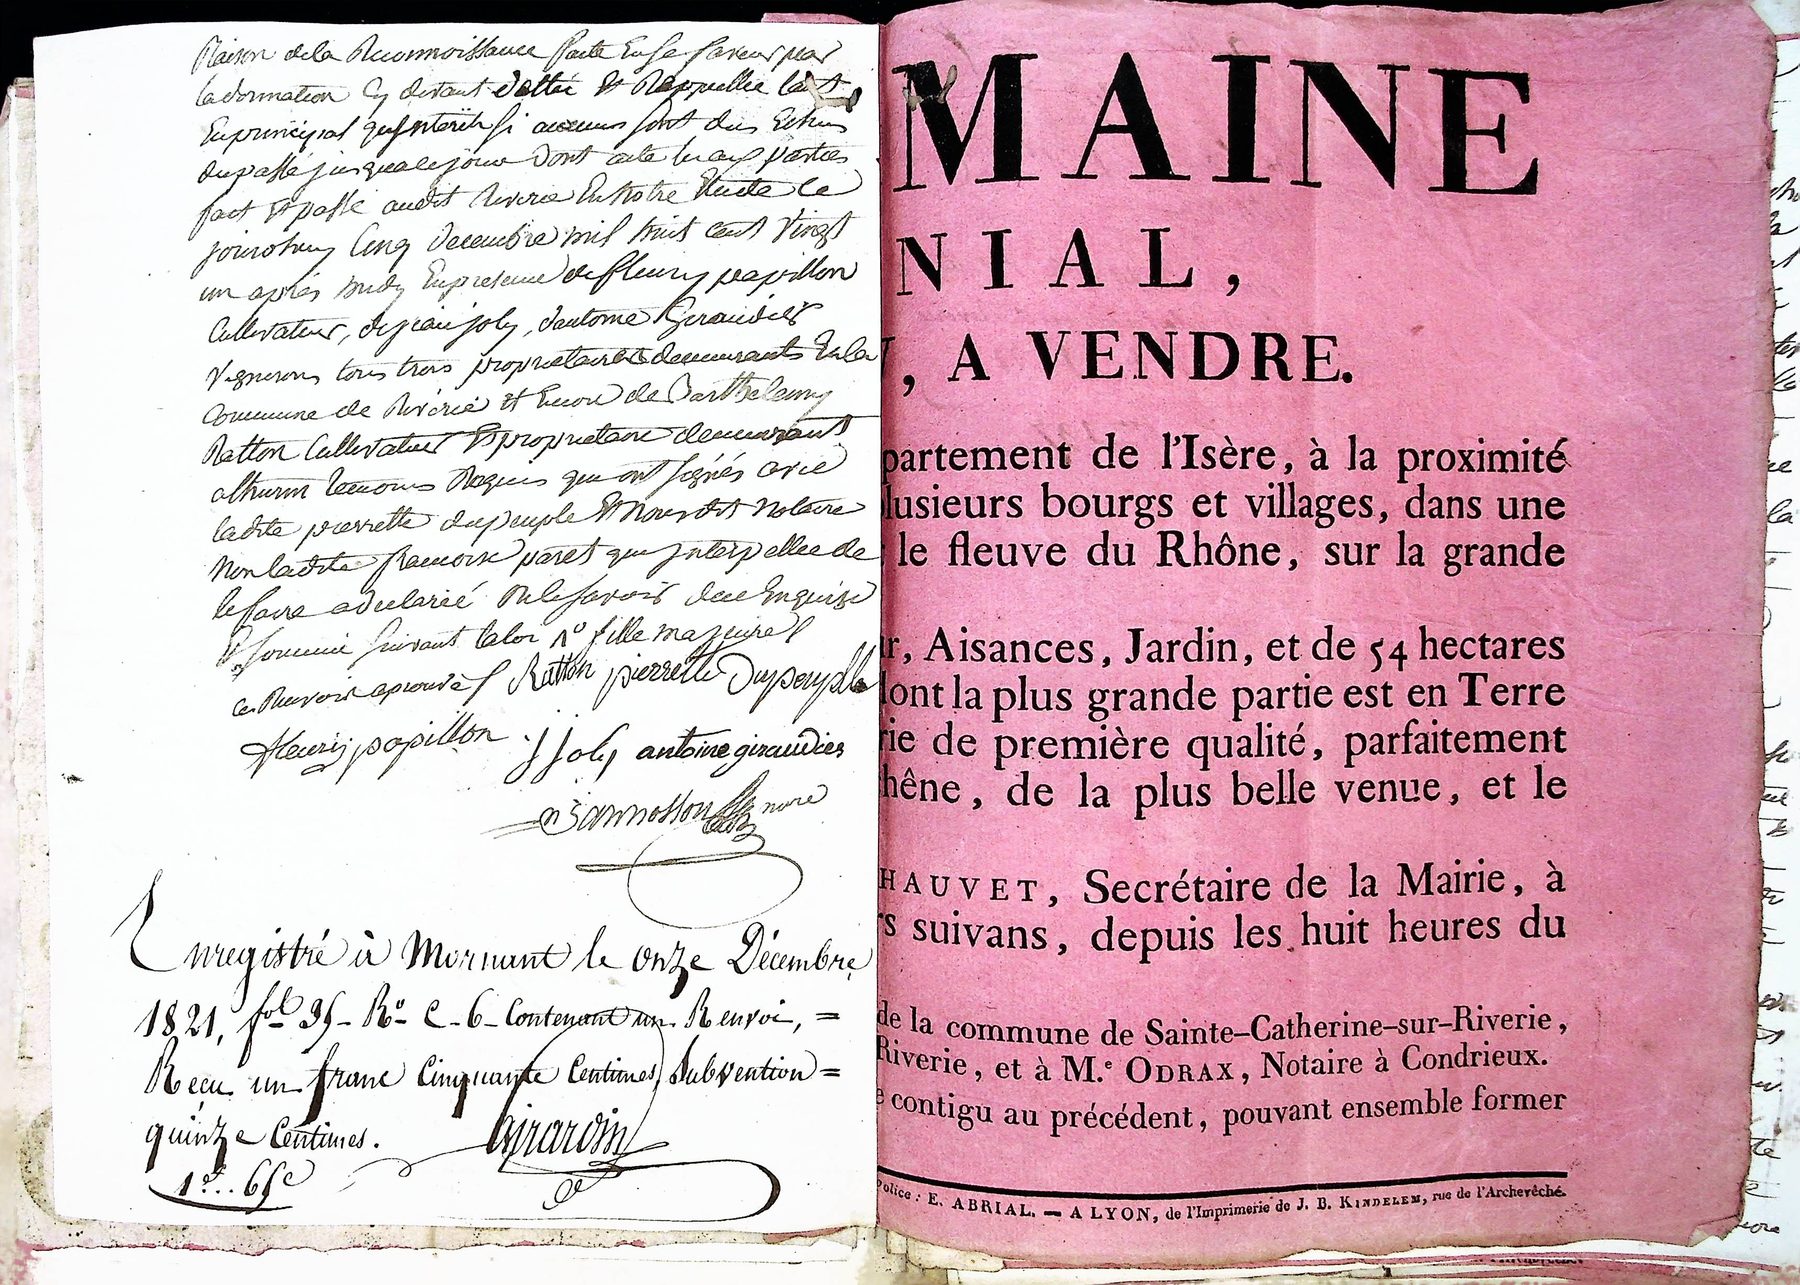 Raison de la Reconnoissance faite En sa faveur par
la donnation Cy devant dattée Et Rappellée tant
En principal qu'jnterêts si aucuns sont dus Echus
du passé jusqu'a ce jour Dont acte lu aux parties
fait Et passé audit Riverie En Notre Etude le
jourdhuy Cinq Decembre mil huit cent Vingt
un après midy En presence de fleury papillon
Cultivateur, de jean joly, d'antoine Giraudier
Vignerons tous trois proprietaires demeurants En la
commune de Riverie Et Encore de Barthelemy
Ratton Cultivateur Et proprietaire demeurant
a thurin temoins Requis qui ont signés avec
ladite pierrette dupeuple Et Nous dit Notaire
Non ladite francoise paret qui jnterpellée de
le faire a declarée Ne le savoir de ce Enquise
Et sommée suivant la loi 1º fille majeure
ce Renvoi aprouvé Ratton pierrette Dupeuple
fleury papillon j joly antoine giraudier
Jannosson nore
Enregistré à Mornant le onze Décembre
1821, fol 35 Ro C. 6 Contenant un Renvoi, =
Reçu un franc Cinquante Centimes, Subvention =
quinze Centimes. Girardin
1f.. 65c
MAINE
NIAL,
, A VENDRE.
partement de l'Isère, à la proximité
plusieurs bourgs et villages, dans une
le fleuve du Rhône, sur la grande
r, Aisances, Jardin, et de 54 hectares
dont la plus grande partie est en Terre
rie de première qualité, parfaitement
hêne, de la plus belle venue, et le
HAUVET, Secrétaire de la Mairie, à
rs suivans, depuis les huit heures du
de la commune de Sainte-Catherine-sur-Riverie,
Riverie, et à M.e ODRAX, Notaire à Condrieux.
e contigu au précédent, pouvant ensemble former
olice : E. ABRIAL. — A LYON, de l'Imprimerie de J. B. KINDELEM, rue de l'Archevêché.